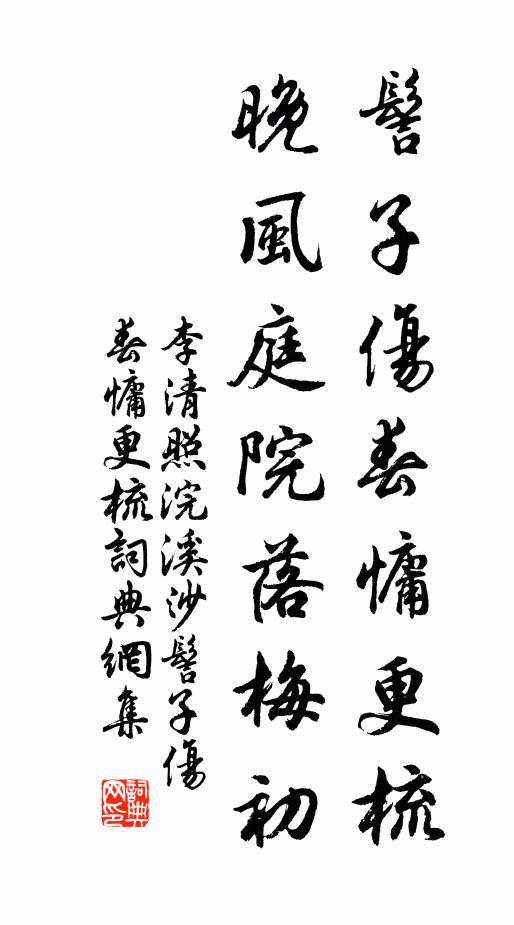 髻子傷春慵更梳
晚風庭院落梅初
李清照浣溪沙髻子傷
春慵更梳詞典網集
詞典
网印